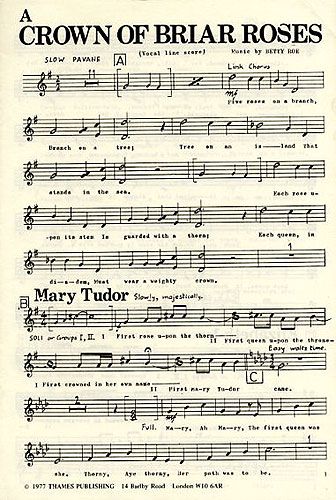 A
CROWN OF BRIAR ROSES
SLOW PAVANE
A
(Vocal line score)
Music by BETTY ROE
Link Chorus
11
mf
Five roses on a branch,
Branch on a tree; Tree on an is——land that
stands in the sea. Each rose u-
-pon its stem is guarded with a thorn; Each queen, in
di—a—dem, Must wear a weighty crown.
1
B
Mary Tudor
Slowly, majestically.
SOLI or Groups I, II. I First rose u-pon the thorn—— II First queen u-pon the throne—
Easy waltz time.
I First crowned in her own name—— II First Ma-ry Tu-dor came.
C
2
mf
Full. Ma—ry, Ah Ma—ry, The first queen was
she. Thorny, Aye thorny, Her path was to be.
1
1
© 1977 THAMES PUBLISHING 14 Barlby Road London W10 6AR